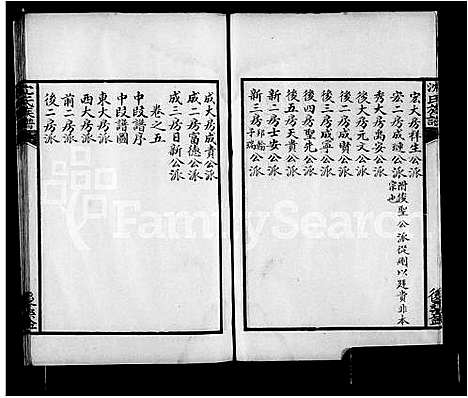 宏大房祥生公派
宏二房成璉公派 附後聖公派從刪以廷貴非本宗也
秀大房萬安公派
後大房元文公派
後二房成財公派
後三房成寧公派
後四房聖先公派
後五房天貴公派
新二房士安公派
新三房
成大房成貴公派
成二房富德公派
成三房日新公派
卷之五
中段譜序
中段譜圖
東大房派
西大房派
前二房派
後二房派
氏族譜
FamilySearch